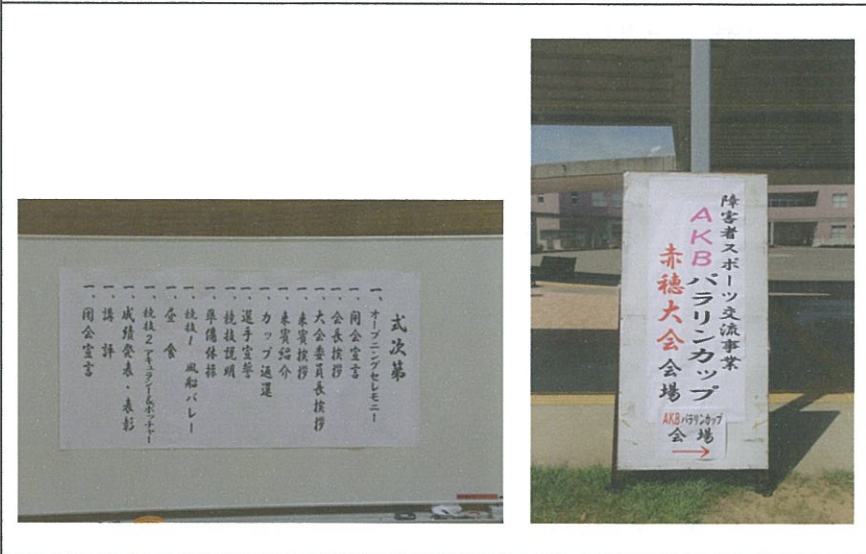 式次第
一、オープニングセレモニー
一、開会宣言
一、会長挨拶
一、大会委員長挨拶
一、来賓挨拶
一、来賓紹介
一、カップ返還
一、選手宣誓
一、競技説明
一、準備体操
一、競技1 風船バレー
一、昼食
一、競技2 アキュラシー&ボッチャー
一、成績発表・表彰
一、講評
一、閉会宣言
障害者スポーツ交流事業
AKBパラリンカップ
赤穂大会会場
AKBパラリンカップ
会場
→